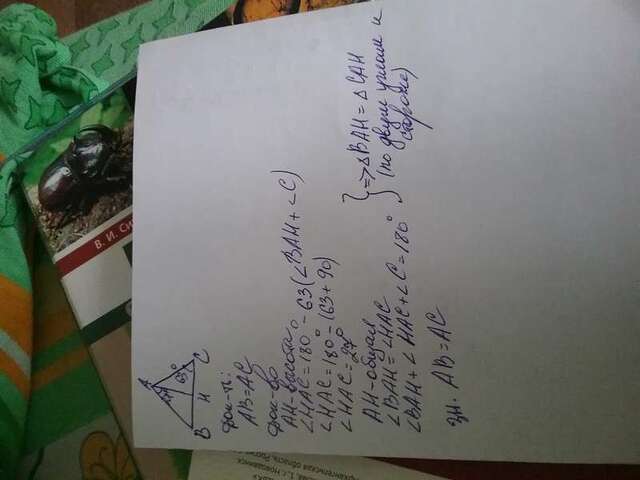 A
27
63°
B
H
C
Док-ть:
AB=AC
Док-во
AH-высота
∠HAC=180°-63(∠BAH+∠C)
∠HAC=180°-(63+90)
∠HAC=27°
AH-общая
∠BAH=∠HAC
∠BAH+∠HAC+∠C=180°
}=>△BAH=△CAH
(по двум углам и
стороне)
зн. AB=AC
В. И. Си